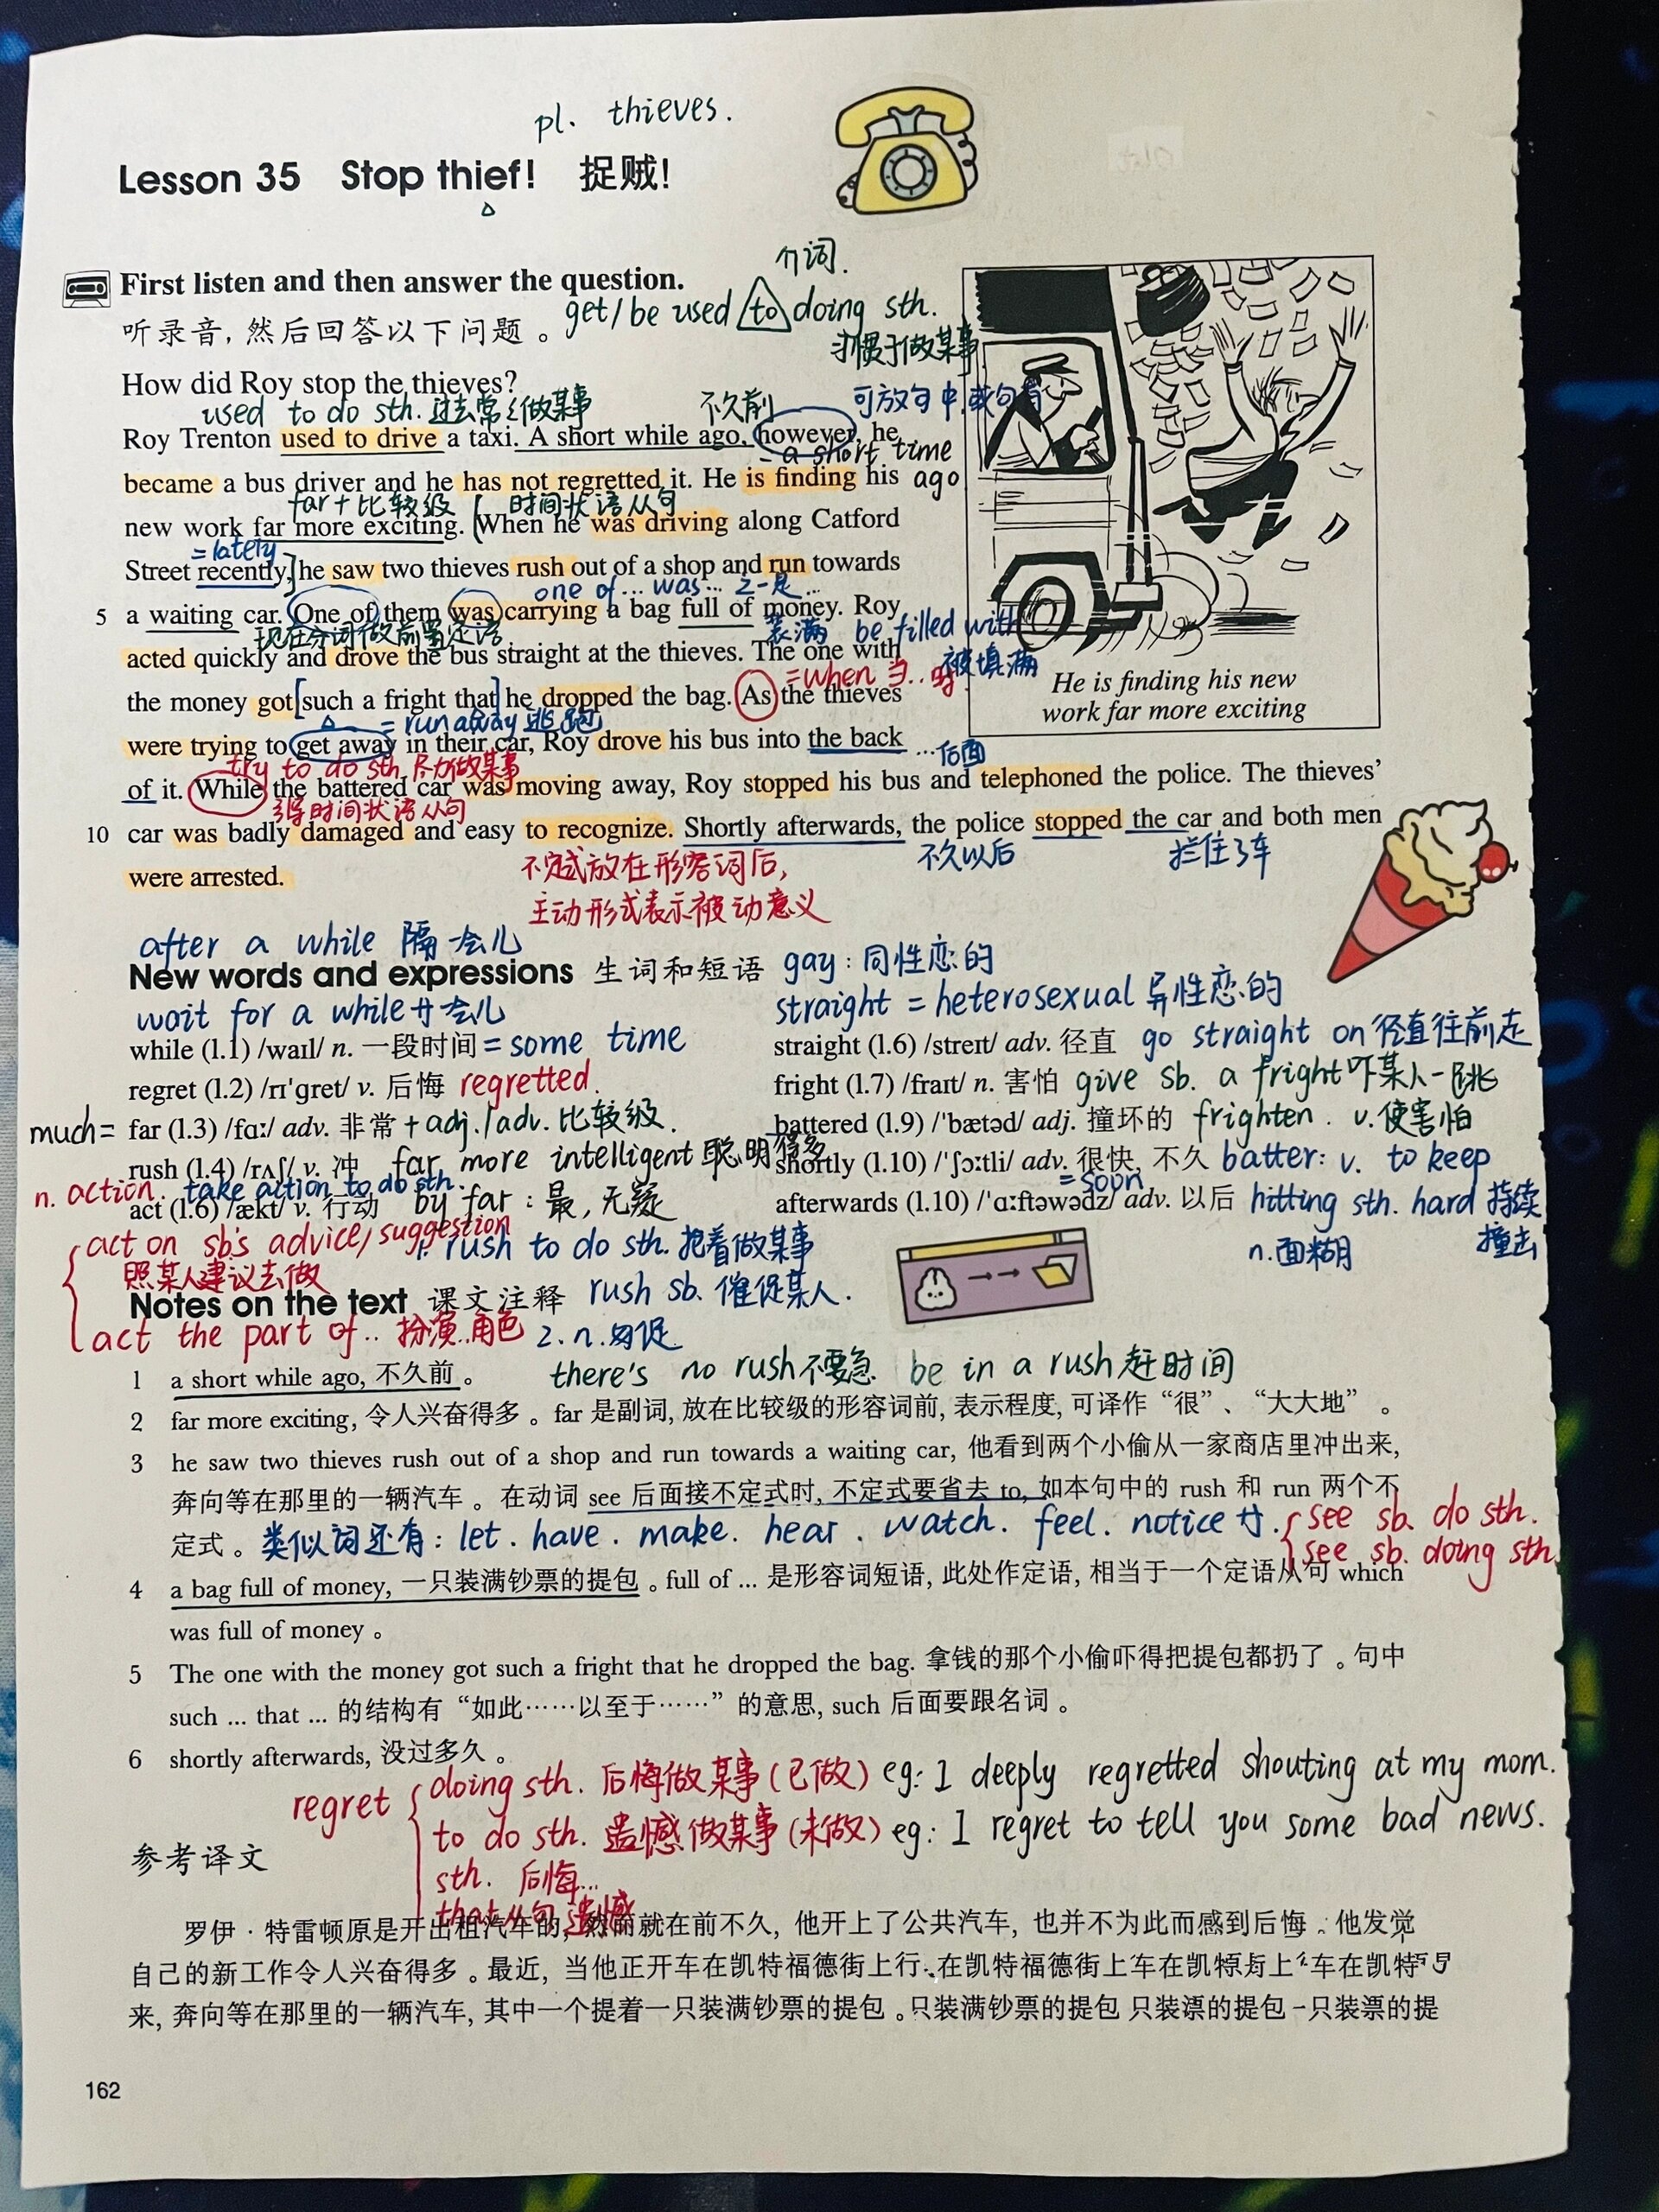 pl. thieves.
Lesson 35 Stop thief! 捉贼!
介词.
First listen and then answer the question.
get/be used to doing sth.
听录音, 然后回答以下问题。
习惯于做某事
How did Roy stop the thieves?
used to do sth. 过去常常做某事
不久前
可放句中或句首
Roy Trenton used to drive a taxi. A short while ago, however, he
= a short time ago
became a bus driver and he has not regretted it. He is finding his
far + 比较级
时间状语从句
new work far more exciting. When he was driving along Catford
= lately
Street recently, he saw two thieves rush out of a shop and run towards
one of... was...之一是...
5 a waiting car. One of them was carrying a bag full of money. Roy
现在分词做前置定语
装满 be filled with
被填满
acted quickly and drove the bus straight at the thieves. The one with
= when 当..时
the money got such a fright that he dropped the bag. As the thieves
= run away 逃跑
were trying to get away in their car, Roy drove his bus into the back
...后面
try to do sth. 尽力做某事
of it. While the battered car was moving away, Roy stopped his bus and telephoned the police. The thieves'
引导时间状语从句
10 car was badly damaged and easy to recognize. Shortly afterwards, the police stopped the car and both men
不久以后
拦住了车
were arrested.
不定式放在形容词后,
主动形式表示被动意义
He is finding his new
work far more exciting
after a while 隔一会儿
New words and expressions 生词和短语
gay: 同性恋的
straight = heterosexual 异性恋的
wait for a while 等一会儿
while (l.1) /waɪl/ n. 一段时间 = some time
regret (l.2) /rɪˈgret/ v. 后悔 regretted.
much = far (l.3) /fɑː/ adv. 非常 + adj./adv. 比较级.
rush (l.4) /rʌʃ/ v. 冲
far more intelligent 聪明得多
n. action. take action to do sth.
act (l.6) /ækt/ v. 行动
by far: 最, 无疑
straight (l.6) /streɪt/ adv. 径直 go straight on 径直往前走
fright (l.7) /fraɪt/ n. 害怕 give sb. a fright 吓某人一跳
battered (l.9) /ˈbætəd/ adj. 撞坏的 frighten. v. 使害怕
shortly (l.10) /ˈʃɔːtli/ adv. 很快, 不久 batter: v. to keep
= soon
afterwards (l.10) /ˈɑːftəwədz/ adv. 以后 hitting sth. hard 持续
撞击
n. 面糊
act on sb's advice/suggestion
照某人建议去做
act the part of.. 扮演..角色
1. rush to do sth. 抢着做某事
Notes on the text 课文注释
rush sb. 催促某人.
2. n. 匆促
there's no rush 不要急 be in a rush 赶时间
1 a short while ago, 不久前。
2 far more exciting, 令人兴奋得多。far 是副词, 放在比较级的形容词前, 表示程度, 可译作 “很”、“大大地” 。
3 he saw two thieves rush out of a shop and run towards a waiting car, 他看到两个小偷从一家商店里冲出来,
奔向等在那里的一辆汽车。在动词 see 后面接不定式时, 不定式要省去 to, 如本句中的 rush 和 run 两个不
定式。
类似词还有: let. have. make. hear. watch. feel. notice 等.
see sb. do sth.
see sb. doing sth.
4 a bag full of money, 一只装满钞票的提包。full of ... 是形容词短语, 此处作定语, 相当于一个定语从句 which
was full of money。
5 The one with the money got such a fright that he dropped the bag. 拿钱的那个小偷吓得把提包都扔了。句中
such ... that ... 的结构有 “如此……以至于……” 的意思, such 后面要跟名词。
6 shortly afterwards, 没过多久。
regret
doing sth. 后悔做某事 (已做) eg: I deeply regretted shouting at my mom.
to do sth. 遗憾做某事 (未做) eg: I regret to tell you some bad news.
sth. 后悔...
that从句 遗憾
参考译文
罗伊·特雷顿原是开出租汽车的, 然而就在前不久, 他开上了公共汽车, 也并不为此而感到后悔。他发觉
自己的新工作令人兴奋得多。最近, 当他正开车在凯特福德街上行在凯特福德街上车在凯特
来, 奔向等在那里的一辆汽车, 其中一个提着一只装满钞票的提包。只装满钞票的提包 只装 的提包 一只装 的提
162